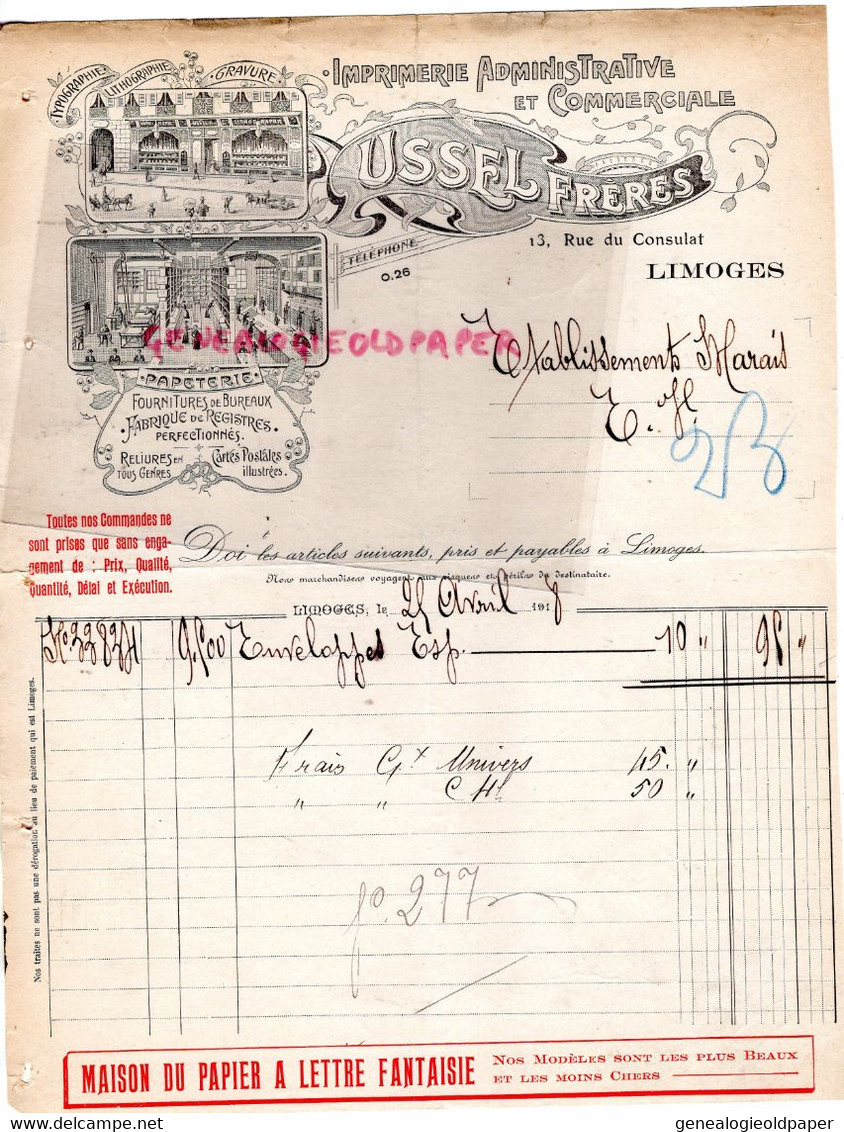 TYPOGRAPHIE LITHOGRAPHIE GRAVURE
IMPRIMERIE ADMINISTRATIVE
ET COMMERCIALE
USSEL FRERES
13, Rue du Consulat
LIMOGES
TÉLÉPHONE
0.26
GENEALOGIEOLDPAPER
Etablissements Marais
PAPETERIE
FOURNITURES DE BUREAUX
FABRIQUE DE REGISTRES
PERFECTIONNÉS.
RELIURES EN
TOUS GENRES
Cartes Postales
illustrées.
Toutes nos Commandes ne
sont prises que sans enga-
gement de : Prix, Qualité,
Quantité, Délai et Exécution.
Doi les articles suivants, pris et payables à Limoges.
Nos marchandises voyagent aux risques et périls du destinataire.
LIMOGES, le 25 Avril 1918
9.500 Enveloppes Esp. 10 " 95 "
Frais Gx Univers 45. "
" " C 50 "
fo. 277
Nos traites ne sont pas une dérogation au lieu de paiement qui est Limoges.
MAISON DU PAPIER A LETTRE FANTAISIE
NOS MODÈLES SONT LES PLUS BEAUX
ET LES MOINS CHERS
genealogieoldpaper